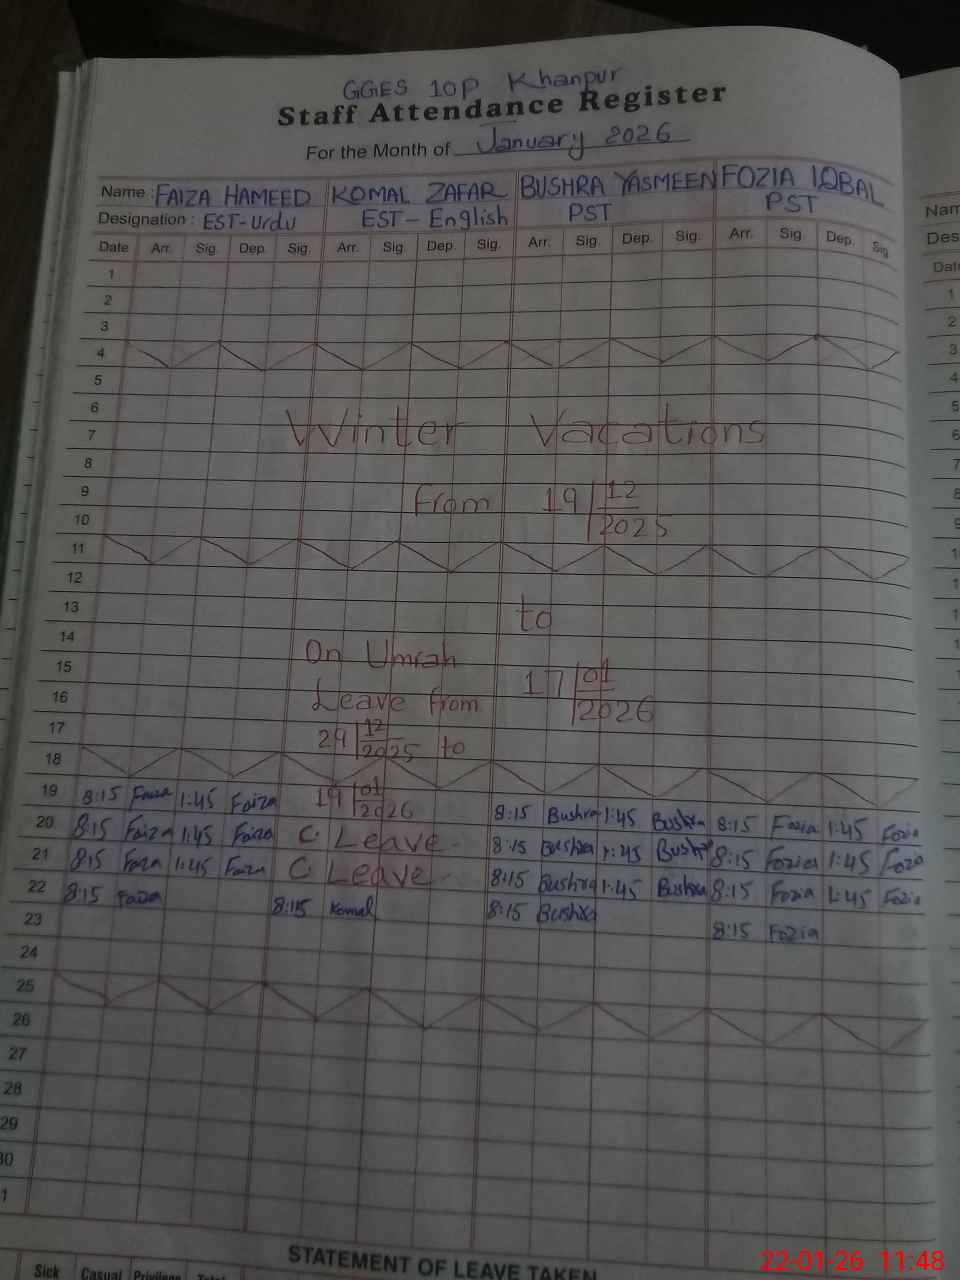 GGES 10P Khanpur
Staff Attendance Register
For the Month of January 2026
Name : FAIZA HAMEED KOMAL ZAFAR BUSHRA YASMEEN FOZIA IQBAL
Designation : EST-Urdu EST-English PST PST
Date Arr. Sig. Dep. Sig. Arr. Sig. Dep. Sig. Arr. Sig. Dep. Sig. Arr. Sig. Dep. Sig.
1
2
3
4
5
6
7 Winter Vacations
8
9 From 19/12/2025
10
11
12
13 to
14
15 On Umrah
16 Leave from 17/01/2026
17 29/12/2025 to
18
19 8:15 Faiza 1:45 Faiza 19/01/2026 8:15 Bushra 1:45 Bushra 8:15 Fozia 1:45 Fozia
20 8:15 Faiza 1:45 Faiza C Leave 8:15 Bushra 1:45 Bushra 8:15 Fozia 1:45 Fozia
21 8:15 Faiza 1:45 Faiza C Leave 8:15 Bushra 1:45 Bushra 8:15 Fozia 1:45 Fozia
22 8:15 Faiza 8:15 Komal 8:15 Bushra 8:15 Fozia
23
24
25
26
27
28
29
30
1
STATEMENT OF LEAVE TAKEN
Sick Casual Privilege Total
Nam
Des
Date
1
2
3
4
5
6
7
8
9
22-01-26 11:48